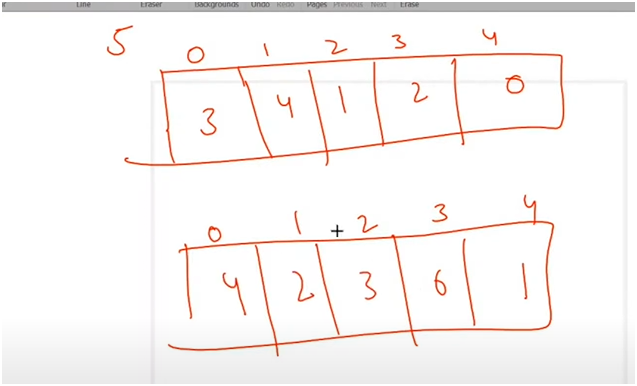 Line Eraser Backgrounds Undo Redo Pages Previous Next Erase
5 0 1 2 3 4
3 4 1 2 0
0 1 2 3 4
4 2 3 6 1